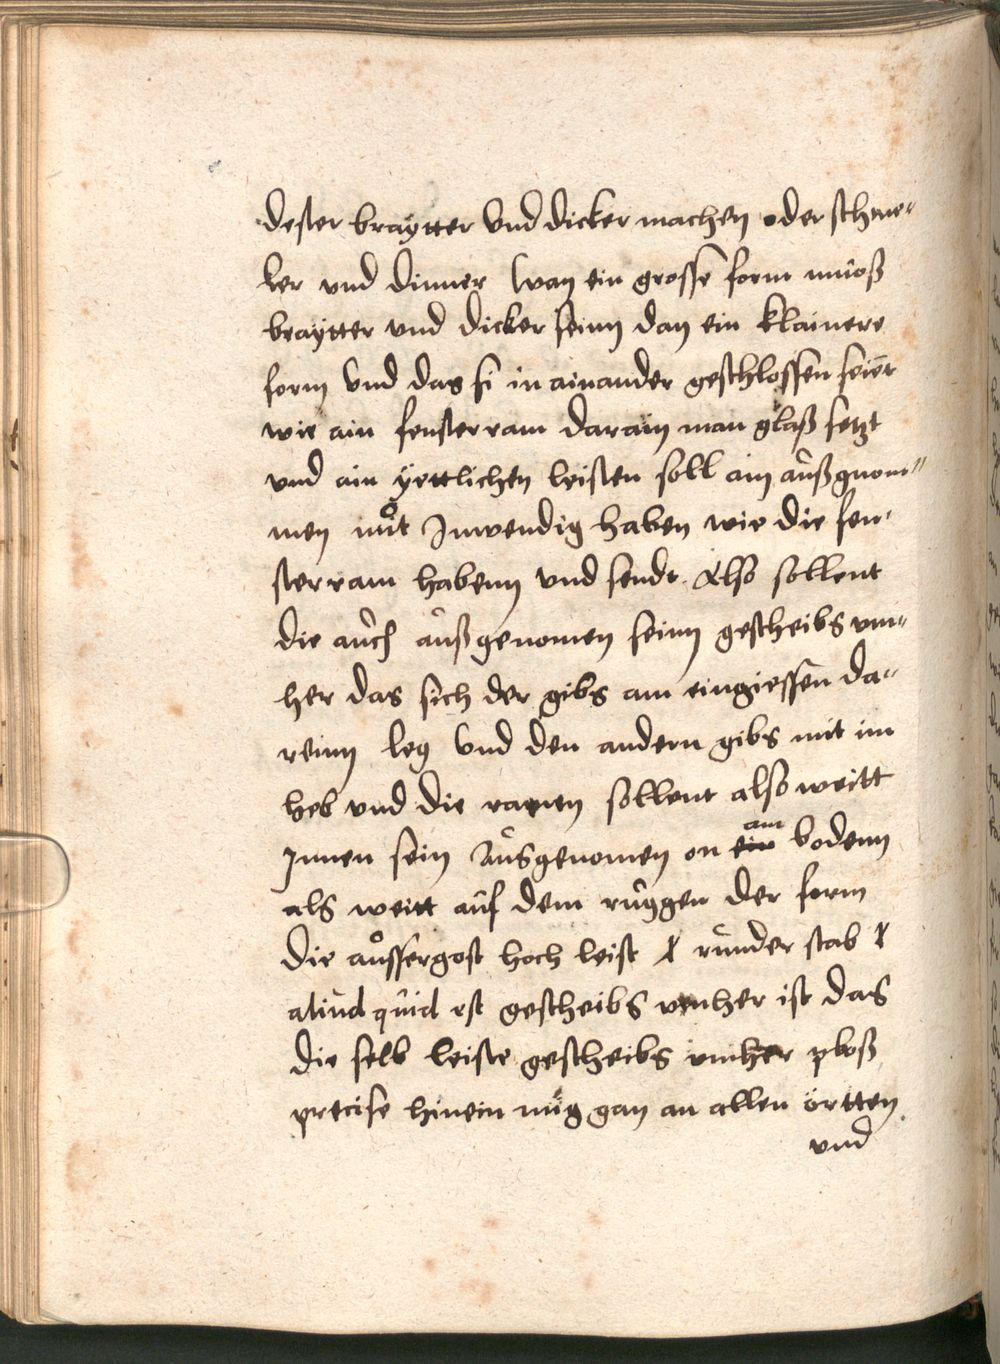 dester braytter Vnd dicker machen oder schme-
ler vnd dinner Wan ein grosse form muoß
braytter vnd dicker seinn dan ein klainere
form Vnd das si in ainander geschlossen seient
wie ain fensterram darain man glaß setzt
vnd ain yettlichen leisten soll ain außgnom-
men nůt Inwendig haben wie die fen-
sterram habenn vnd sendt Also sollent
die auch außgenomen seinn gescheibs vm-
her das sich der gibs am eingiessen da-
reinn leg Vnd den andern gibs mit im
heb vnd die ramen sollent also weitt
Innen sein Ausgenomen on am bodenn
als weitt auf dem ruggen der form
die aůssergost hoch leist runder stab
aliud quid est gescheibs vmher ist das
die selb leiste gescheibs vmher ploß
precise hinein mug gan an allen örtten
vnd